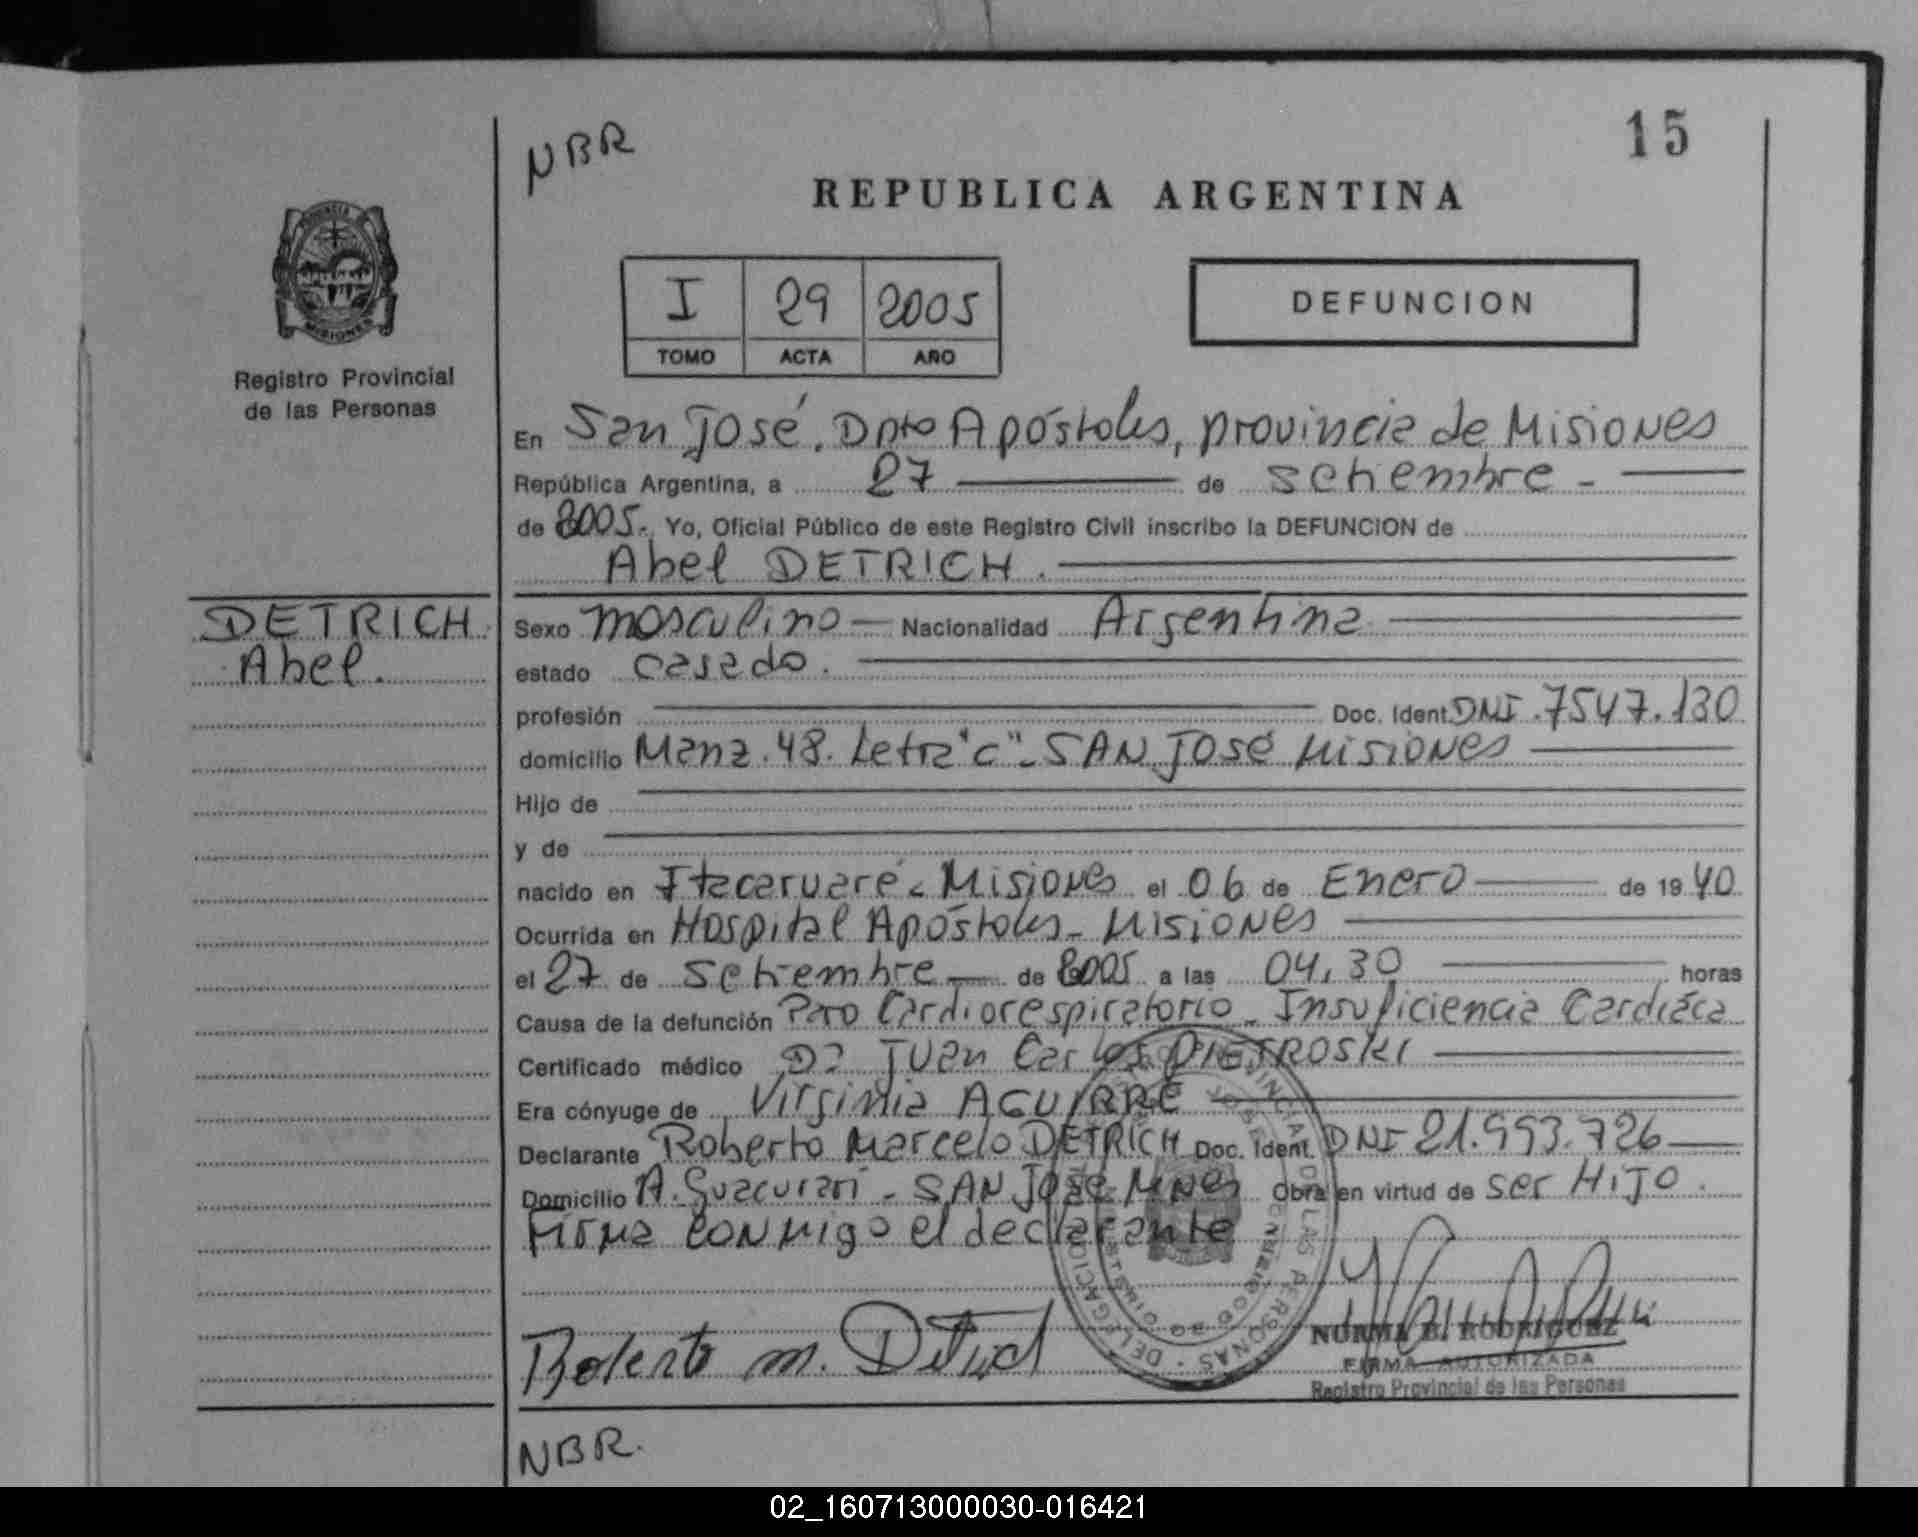 NBR
15
REPUBLICA ARGENTINA
PROVINCIA DE
MISIONES
Registro Provincial
de las Personas
I 29 2005
TOMO ACTA AÑO
DEFUNCION
En San José, Dpto Apóstoles, provincia de Misiones
República Argentina, a 27 de setiembre -
de 2005. Yo, Oficial Público de este Registro Civil inscribo la DEFUNCION de
Abel DETRICH.
DETRICH
Abel.
Sexo masculino Nacionalidad Argentina
estado casado.
profesión Doc. Ident. DNI. 7547.130
domicilio Manz. 48. Letra "c" - SAN José Misiones
Hijo de
y de
nacido en Itacaruaré - Misiones el 06 de Enero de 1940
Ocurrida en Hospital Apóstoles - Misiones
el 27 de setiembre de 2005 a las 04,30 horas
Causa de la defunción Paro Cardiorespiratorio - Insuficiencia Cardiáca
Certificado médico Dr Juan Carlos PIETROSKI
Era cónyuge de Virginia AGUIRRE
Declarante Roberto Marcelo DETRICH Doc. Ident. DNI 21.993.726
Domicilio A. Guacurarí - SAN José Mnes Obra en virtud de ser HIJO.
Firma conmigo el declarante
Roberto m. Detrich
NORMA B. RODRIGUEZ
FIRMA AUTORIZADA
Registro Provincial de las Personas
NBR.
02_160713000030-016421